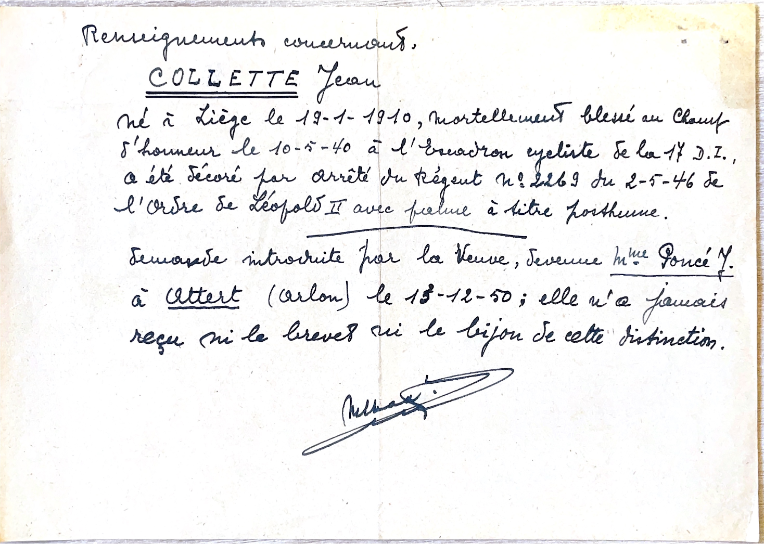 Renseignements concernant.
COLLETTE Jean
né à Liège le 19-1-1910, mortellement blessé au Champ
d'honneur le 10-5-40 à l'Escadron cycliste de la 17 D.I.,
a été décoré par arrêté du Régent nº 2269 du 2-5-46 de
l'Ordre de Léopold II avec palme à titre posthume.
demande introduite par la Veuve, devenue Mme Poncé J.
à Attert (Arlon) le 13-12-50; elle n'a jamais
reçu ni le brevet ni le bijou de cette distinction.